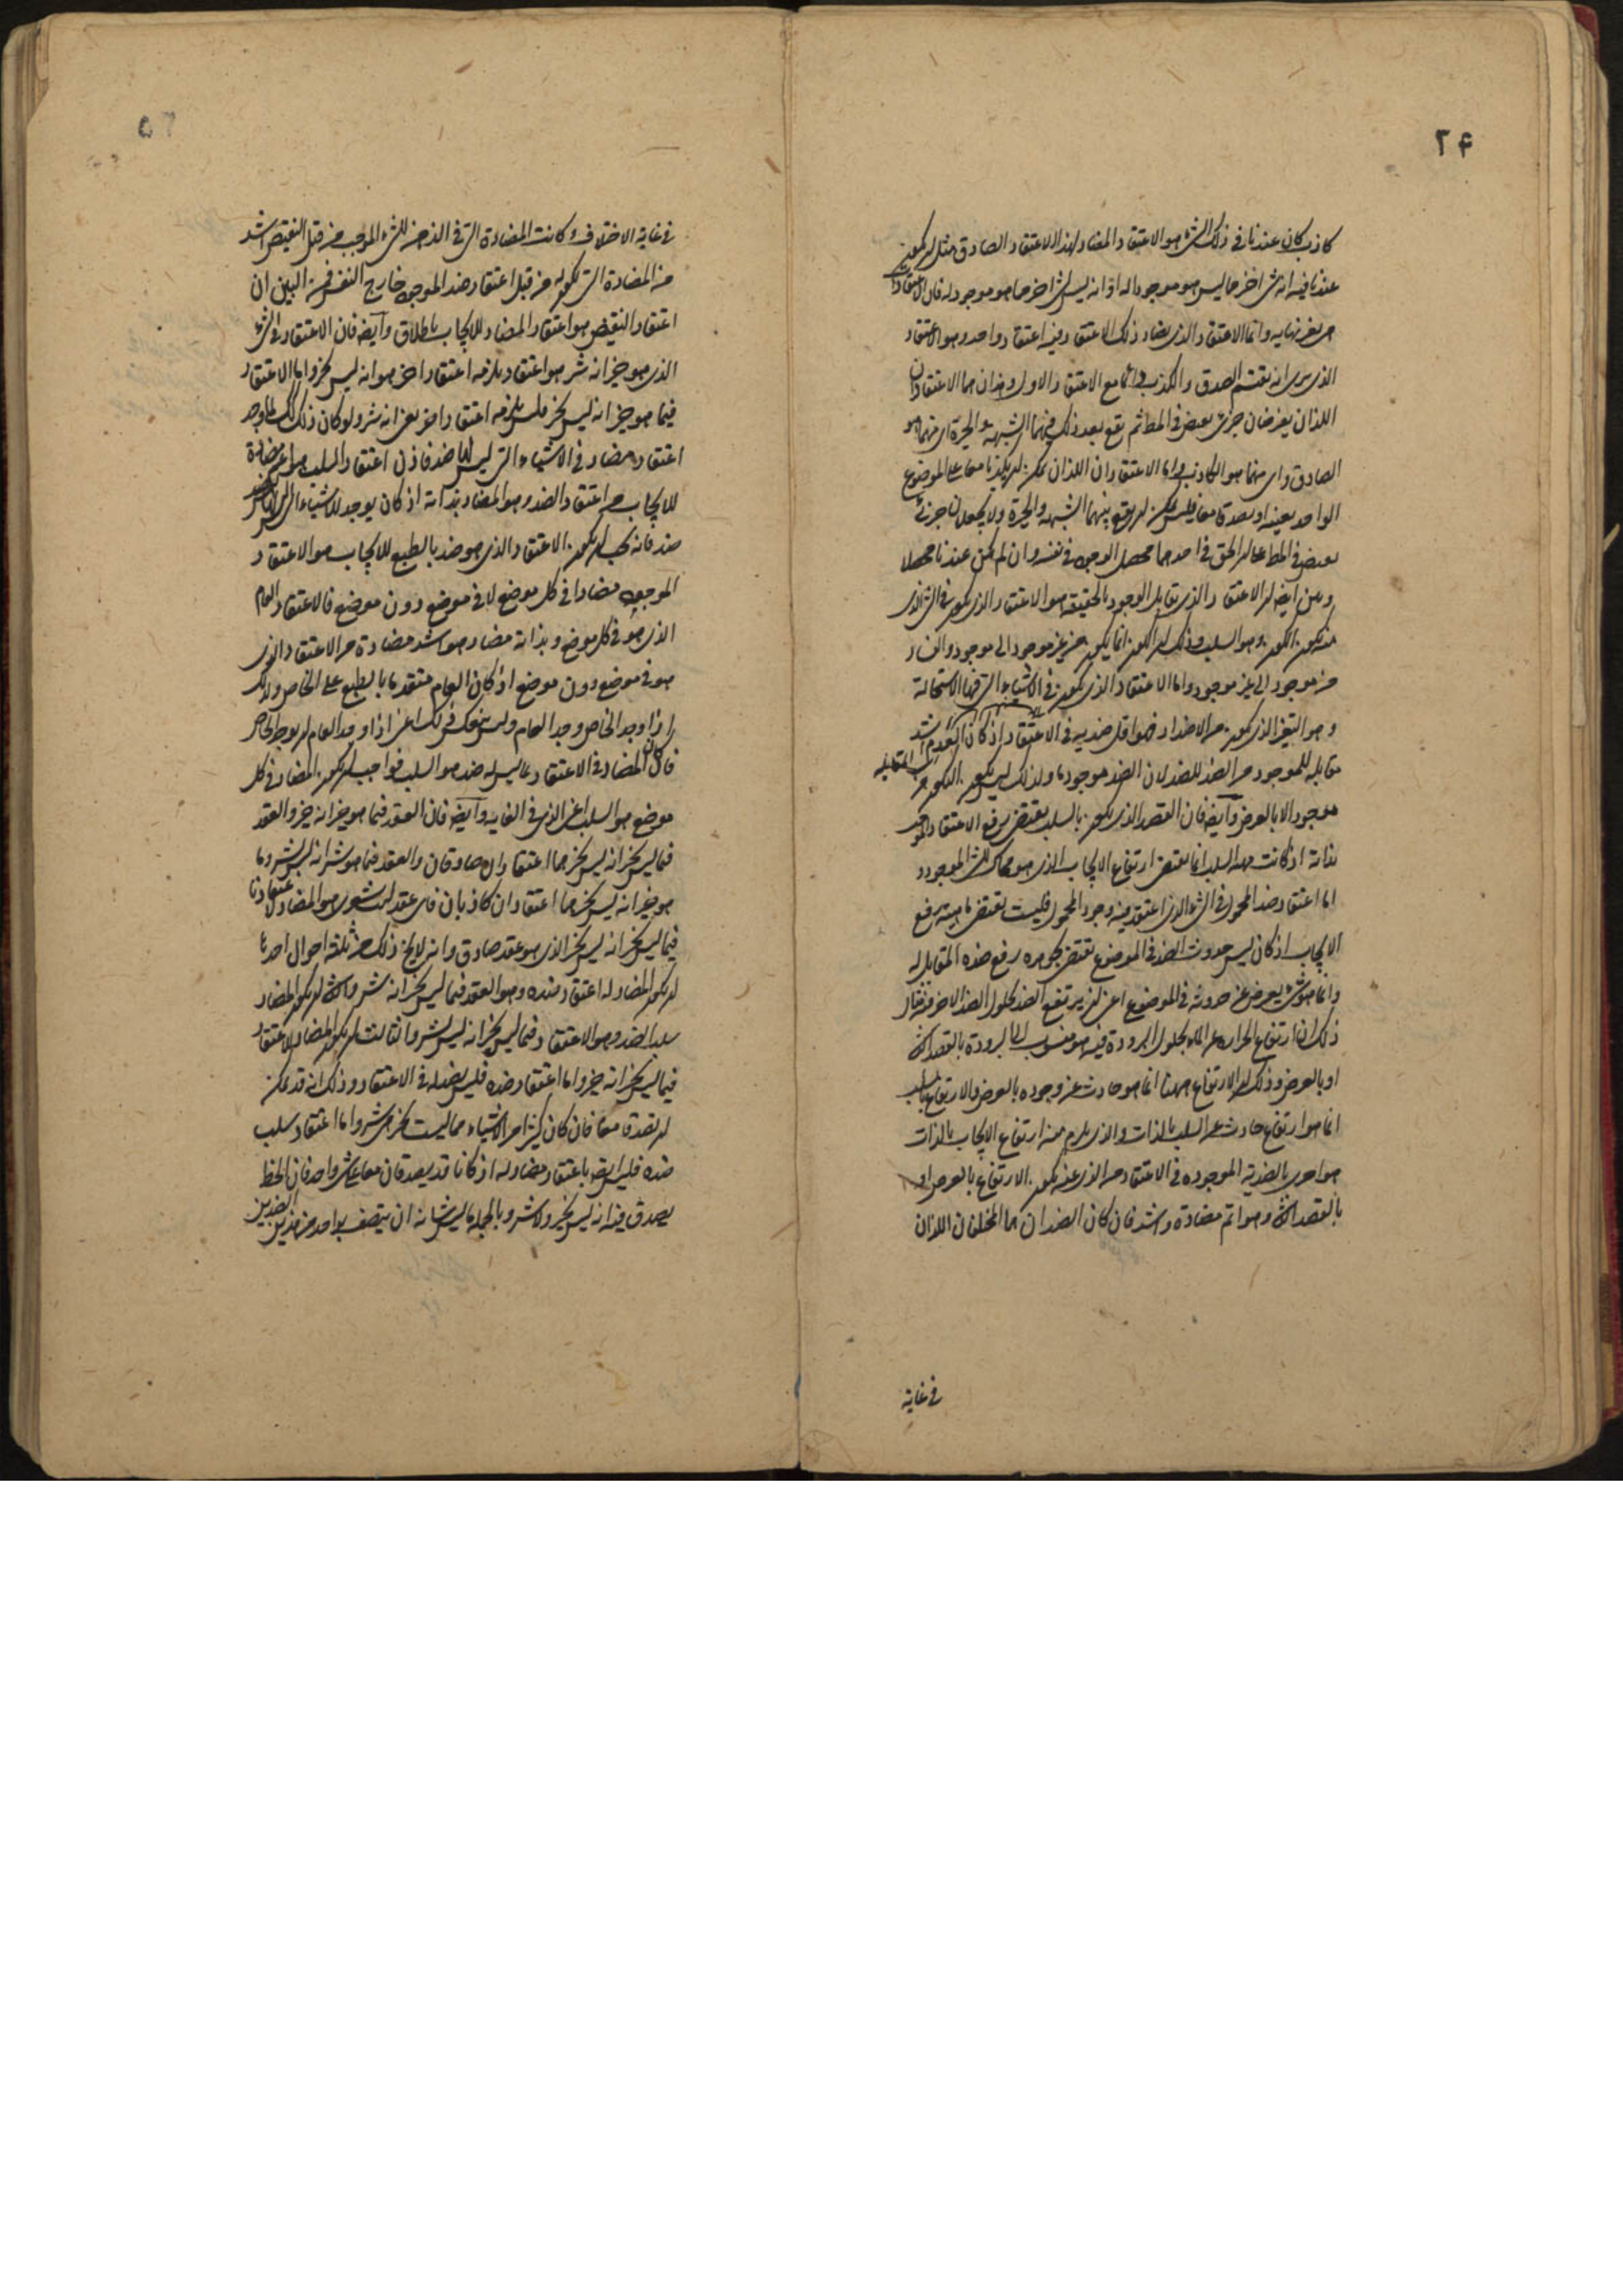 ٢۴
كاذب كان عندنا فى ذلك الشىء هو الاعتقاد المضاد لهذا الاعتقاد الصادق مثل ان يكون
عندنا فيه انه شىء اخر مما ليس هو موجودا له او انه ليس شىء اخر مما هو موجود له فان الاعتقادات
بغير نهايه وانما الاعتقاد الذى يضاد ذلك الاعتقاد فيه اعتقاد واحد وهو الاعتقاد
الذى نرى انه يقتسم الصدق والكذب دائما مع الاعتقاد الاول وهذان هما الاعتقادان
اللذان يفرضان جزئى نقيض فى المط ثم يقع بعد ذلك فيهما الشبهة والحيرة اى منهما هو
الصادق واى منهما هو الكاذب واما الاعتقادان اللذان يمكن ان يكذبا معا على الموضوع
الواحد بعينه او يصدقا معا فليس يمكن ان يقع بينهما الشبهه والحيرة ولا يجعلان جزئى
نقيض فى المط على ان الحق فى احدهما محصل الوجود فى نفسه وان لم يكن عندنا محصلا
وبين ايضا ان الاعتقاد الذى يقابل الوجود بالحقيقه هو الاعتقاد الذى يكون فى الشىء الذى
منه يكون الكون وهو السلب وذلك ان الكون انما يكون من غير موجود الى موجود والفساد
من موجود الى غير موجود واما الاعتقاد الذى يكون فى الاشياء التى فيها الاستحالة
وهو التغير الذى يكون من الاضداد فهو اقل ضديه فى الاعتقاد اذ كان العدم اشد
مقابله للموجود من الضد للضد لان الضد موجود ما ولذلك ليس يكون الكون من
موجود الا بالعرض وايضا فان القصد الذى يكون بالسلب يقتضى رفع الاعتقاد الموجب
بذاته اذ كانت جهة السلب انما يقتضى ارتفاع الايجاب الذى هو محاك للشىء الموجود
اما اعتقاد ضد المحمول فى الشىء الذى اعتقد فيه وجود المحمول فليست تقتضى ماهيته رفع
الايجاب اذ كان ليس حدوث الضد فى الموضوع يقتضى بجوهره رفع ضده المقابل له
وانما هو شىء يعرض عن حدوثه فى الموضوع اعنى ان يرتفع الضد بحلول الضد الاخر فيه مثال
ذلك ان ارتفاع الحراره عن الماء بحلول البرودة فيه هو منسوب الى البرودة بالقصد الثانى
او بالعرض وذلك ان الارتفاع ههنا انما هو حادث عن وجوده بالعرض والارتفاع بالسلب
انما هو ارتفاع حادث عن السلب بالذات والذى يلزم منه ارتفاع الايجاب بالذات
هو احرى بالضدية الموجوده فى الاعتقاد من الذى عنه يكون الارتفاع بالعرض او
بالقصد الثانى وهو اتم مضادة واشد فان كان الضدان هما المختلفان اللذان
فى غاية
٢٥
فى غاية الاختلاف وكانت المضادة التى فى الذهن للشىء الموجب من قبل النقيض اشد
من المضادة التى تكون له من قبل اعتقاد ضد الموجود خارج النفس فمن البين ان
اعتقاد النقيض هو اعتقاد المضاد للايجاب باطلاق وايضا فان الاعتقاد فى الشىء
الذى هو خير انه شر هو اعتقاد يلزمه اعتقاد اخر هو انه ليس بخير واما الاعتقاد
فيما هو خير انه ليس بخير فليس يلزمه اعتقاد اخر يعنى انه شر ولو كان ذلك كذلك لما وجد
اعتقاد مضاد فى الاشياء التى ليس لها ضد فاذن اعتقاد السلب هو اعم مضادة
للايجاب من اعتقاد الضد وهو المضاد بذاته اذ كان يوجد للاشياء التى ليس لها
ضد فانه يجب ان يكون الاعتقاد الذى هو ضد بالطبع للايجاب هو الاعتقاد
الموجود مضادا فى كل موضع لا فى موضع دون موضع فالاعتقاد العام
الذى هو فى كل موضع وبذاته مضاد هو اشد مضادة من الاعتقاد الذى
هو فى موضع دون موضع اذ كان العام متقدما بالطبع على الخاص ولذلك
اذا وجد الخاص وجد العام وليس ينعكس ذلك اعنى اذا وجد العام ان يوجد الخاص
فان كان المضاد فى الاعتقاد مما ليس له ضد هو السلب فواجب ان يكون المضاد فى كل
موضع هو السلب اعنى الذى فى الغايه وايضا فان العقد فيما هو خير انه خير والعقد
فيما ليس بخير انه ليس بخير هما اعتقادان صادقان والعقد فيما هو شر انه ليس بشر وما
هو خير انه ليس بخير هما اعتقادان كاذبان فاى عقد ليت شعرى هو المضاد لاعتقادنا
فيما ليس بخير انه ليس بخير الذى هو عقد صادق وانه لا يخلو ذلك من ثلثة احوال احدها
ان يكون المضاد له اعتقاد ضده وهو العقد فيما ليس بخير انه شر والثانى ان يكون المضاد
سلب الضد وهو الاعتقاد فيما ليس بخير انه ليس بشر والثالث ان يكون المضاد الاعتقاد
فيما ليس بخير انه خير واما اعتقاد ضده فليس بضد له فى الاعتقاد وذلك انه قد يمكن
ان يصدقا معا فان كان كثيرا من الاشياء مما ليست بخير هى شر واما اعتقاد سلب
ضده فليس ايضا باعتقاد مضاد له اذ كانا قد يصدقان معا على شىء واحد فان الخط
يصدق فيه انه ليس بخير ولا شر وبالجمله ما ليس شانه ان يتصف بواحد من هذين الضدين